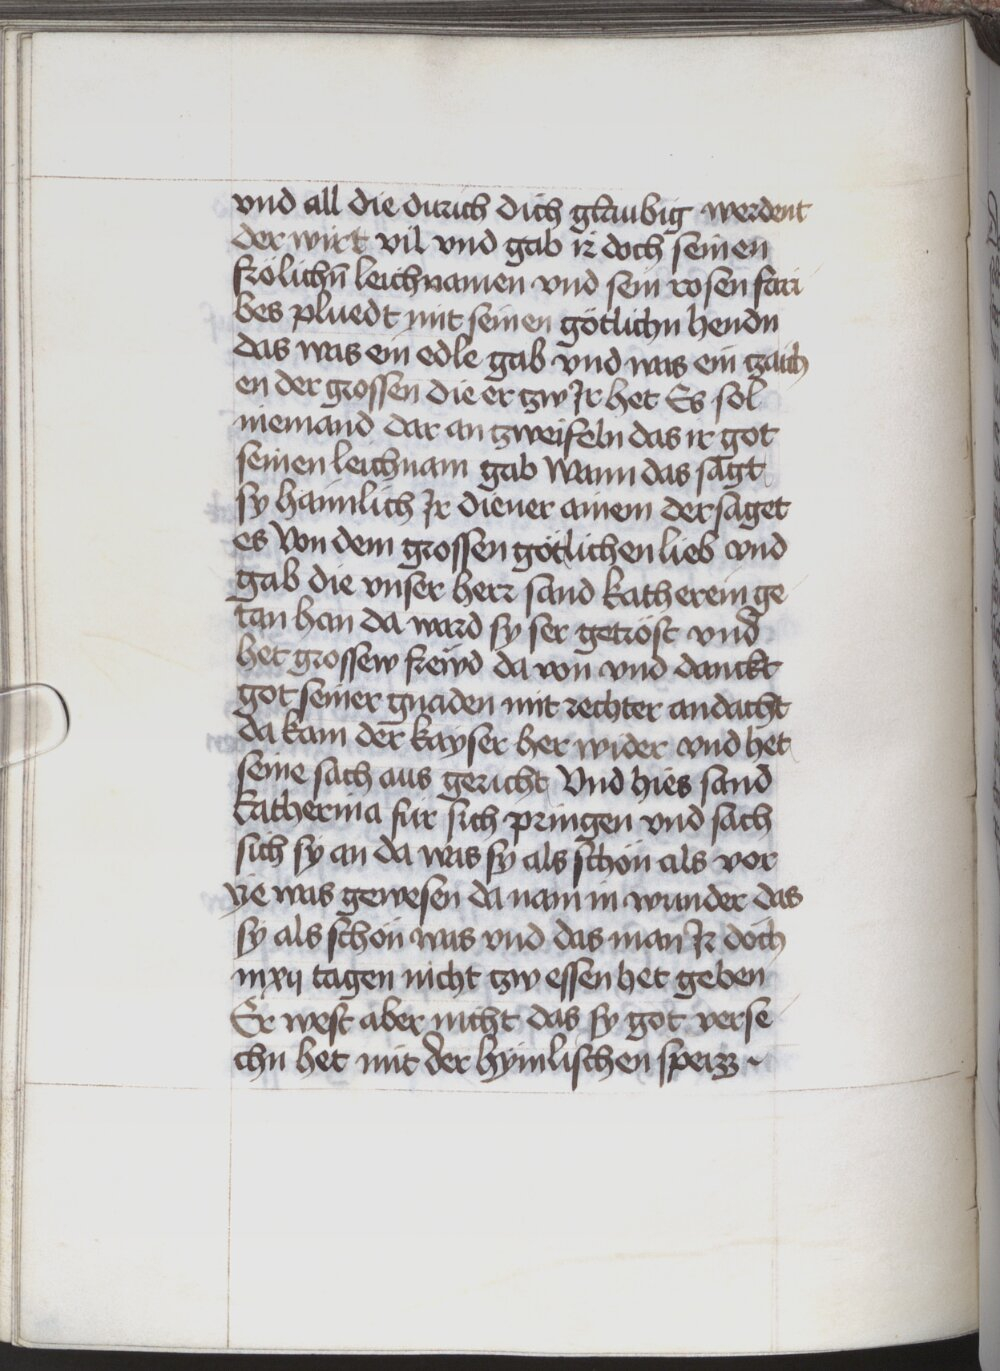 vnd all die durich dich glaubig werdent
der wirt vil vnd gab ir doch seinen
frölichn̄ leichnamen vnd sein rosen fari
bes pluedt mit seinen götlichn hendn
das was ein edle gab vnd was ein zaich
en der grossen die er zw Jr het Es sol
niemand dar an zweifeln das ir got
seinen leichnam gab Wann das sagt
sy haimlich Jr diener ainem der saget
es Von dem grossen götlichen lieb vnd
gab die vnser herr sand katherein ge
tan han da ward sy ser getröst vnd
het grossew frewd da von vnd danckt
got seiner gnaden mit rechter andacht
da kam der kayser her wider vnd het
seine sach aus gericht Vnd hies sand
katherina für sich pringen vnd sach
sich sy an da was sy als schön als vor
ye was gewesen da nam in wunder das
sy als schön was vnd das man Jr doch
in xij tagen nicht zw essen het geben
Er west aber nicht das sy got verse
chn het mit der hymlischen speizz ~